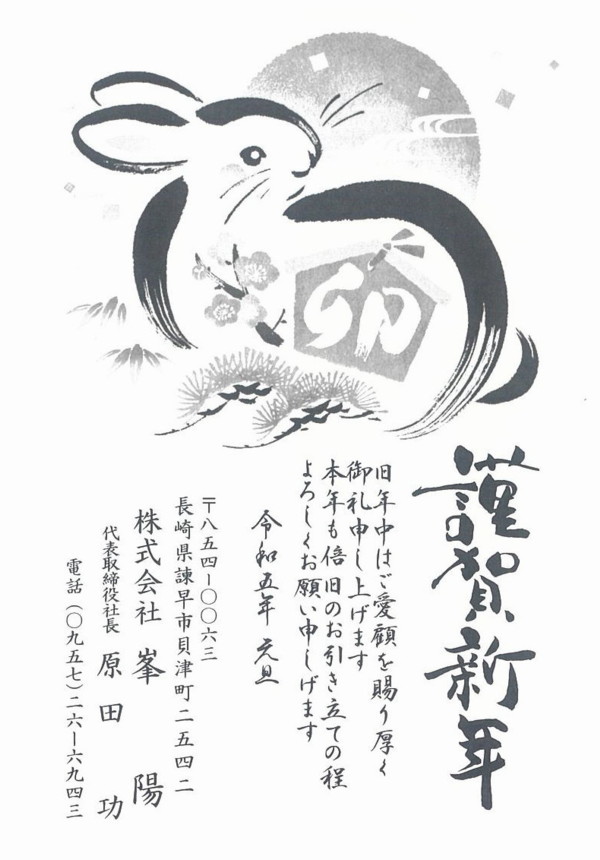 卯
謹賀新年
旧年中はご愛顧を賜り厚く
御礼申し上げます
本年も倍旧のお引き立ての程
よろしくお願い申しげます
令和五年 元旦
〒八五四－〇〇六三
長崎県諫早市貝津町二五四二
株式会社 峯陽
代表取締役社長 原田 功
電話（〇九五七）二六－六九四三